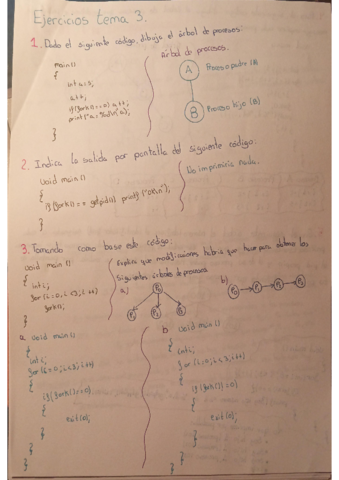 Ejercicios tema 3.
1. Dado el siguiente código, dibuja el árbol de procesos:
main()
{
int a=0;
a++;
if(fork()==0) a++;
printf("a=%d\n",a);
}
Árbol de procesos.
A Proceso padre (A)
B Proceso hijo (B)
2. Indica la salida por pantalla del siguiente código:
void main()
{
if(fork()== getpid()) printf("OK\n");
}
No imprimiría nada.
3. Tomando como base este código:
void main()
{
int i;
for(i=0;i<3;i++)
fork();
}
Explica que modificaciones habría que hacer para obtener los
siguientes árboles de procesos
a)
b)
a void main()
{
int i;
for(i=0;i<3;i++)
{
if(fork()==0)
{
exit(0);
}
}
}
b void main()
{
int i;
for(i=0;i<3;i++)
{
{
exit(0);
}
}
}